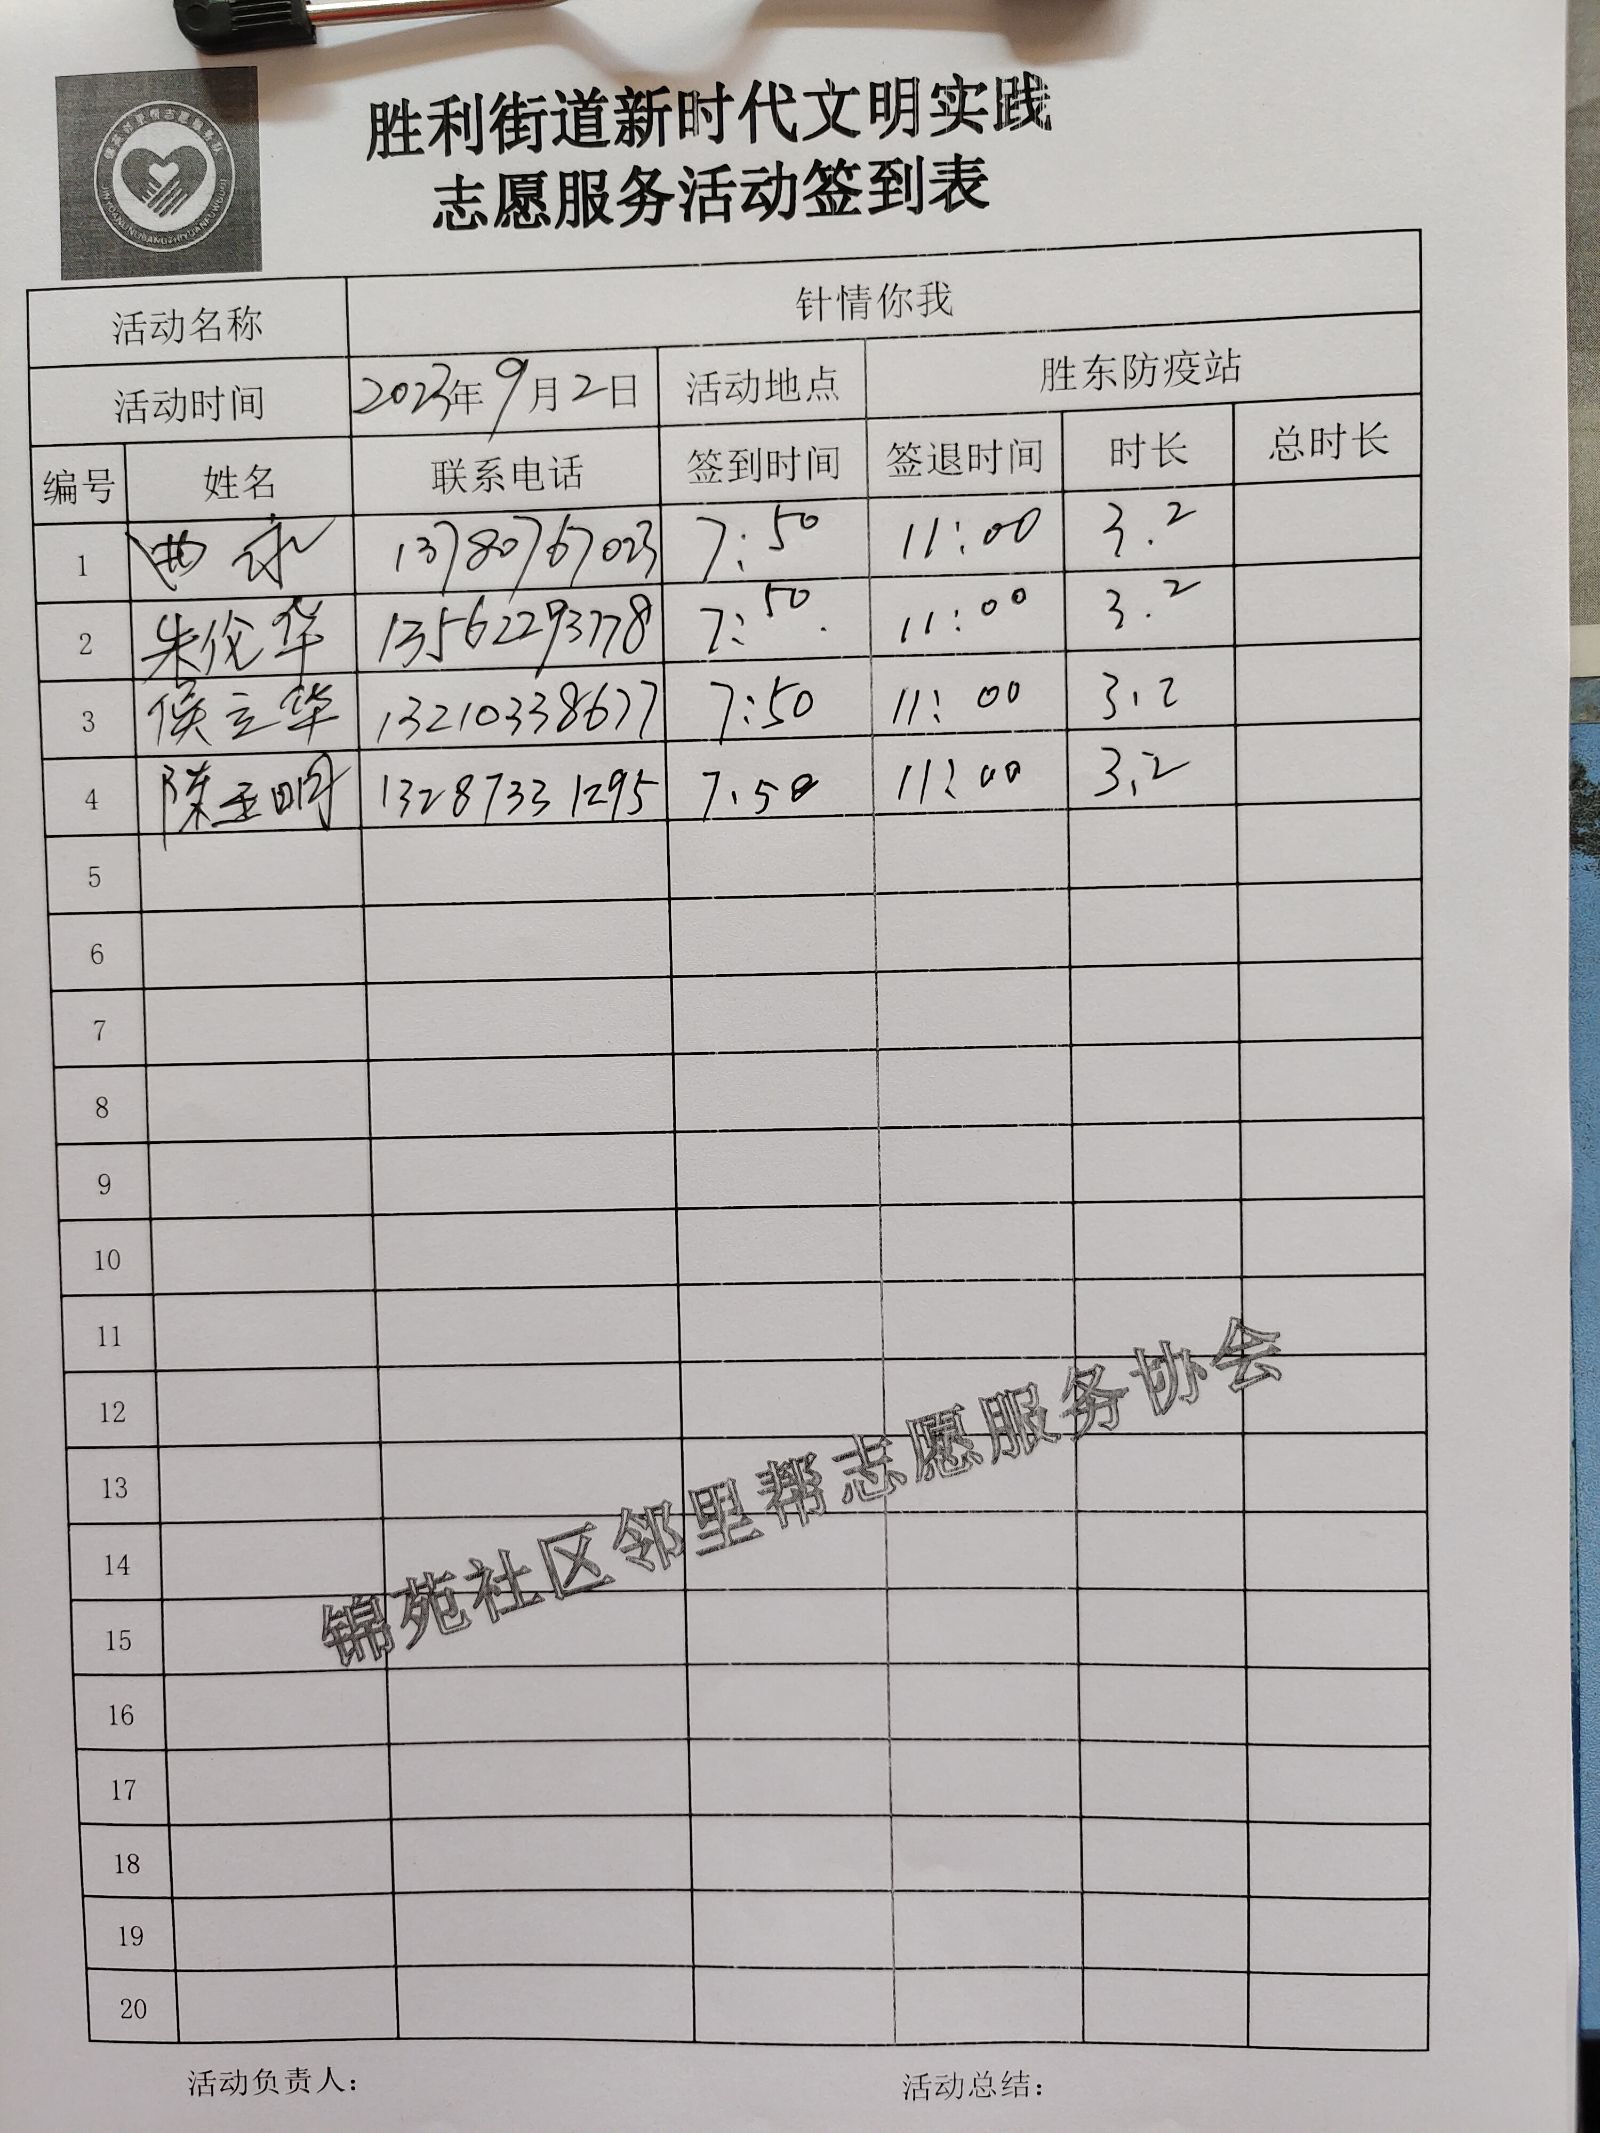 胜利街道新时代文明实践
志愿服务活动签到表
活动名称 针情你我
活动时间 2023年9月2日 活动地点 胜东防疫站
编号 姓名 联系电话 签到时间 签退时间 时长 总时长
1 曲永 13780767023 7:50 11:00 3.2
2 朱伦华 13562293778 7:50 11:00 3.2
3 侯立华 13210338677 7:50 11:00 3.2
4 陈玉明 13287331295 7:50 11:00 3.2
5
6
7
8
9
10
11
12
13
14
15
16
17
18
19
20
锦苑社区邻里帮志愿服务协会
活动负责人： 活动总结：